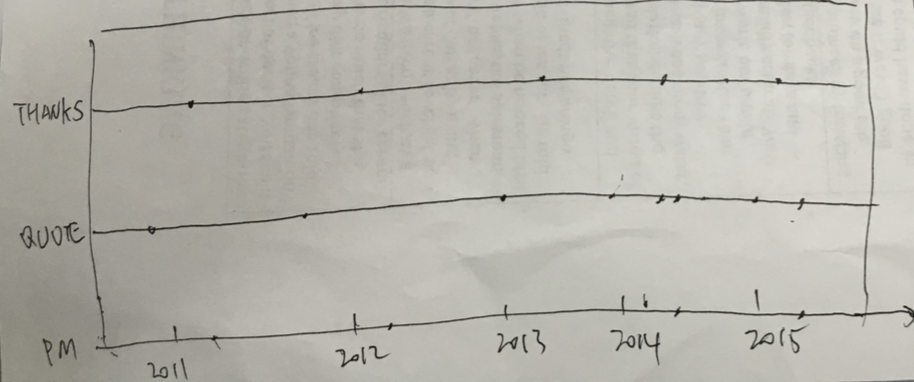 THANKS
QUOTE
PM
2011 2012 2013 2014 2015